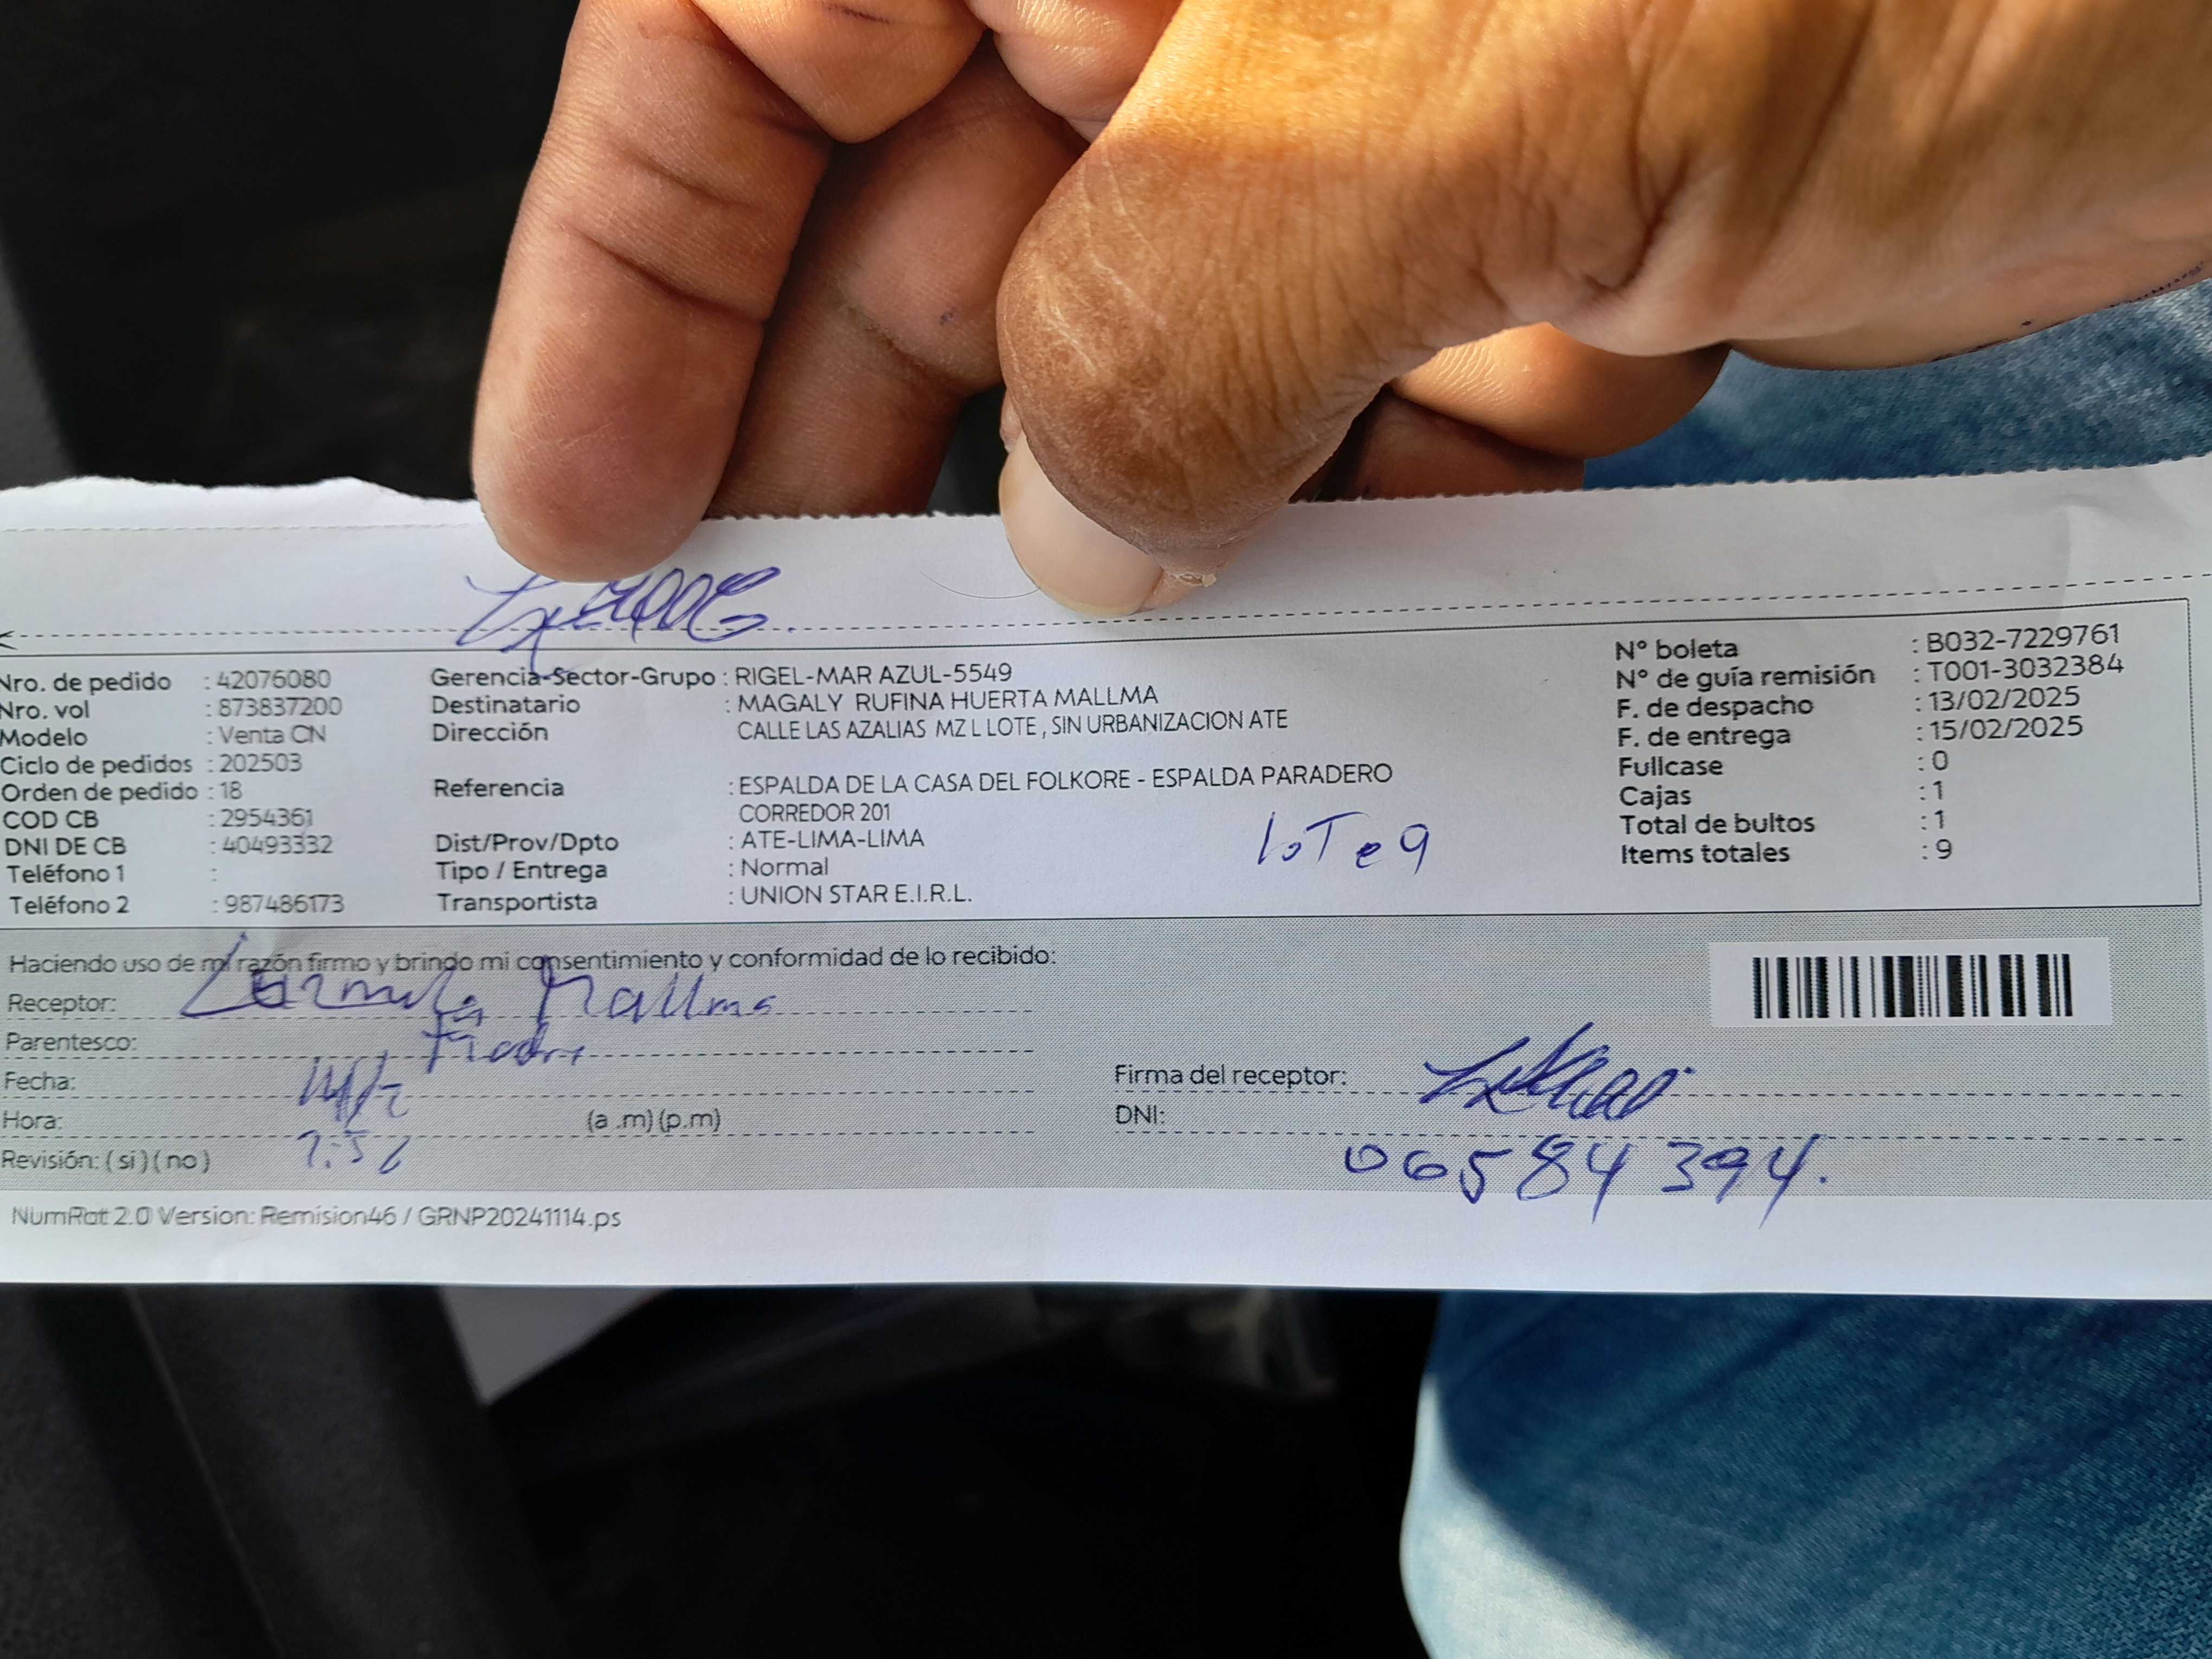 Nro. de pedido : 42076080
Nro. vol : 873837200
Modelo : Venta CN
Ciclo de pedidos : 202503
Orden de pedido : 18
COD CB : 2954361
DNI DE CB : 40493332
Teléfono 1 :
Teléfono 2 : 987486173
Gerencia-Sector-Grupo : RIGEL-MAR AZUL-5549
Destinatario : MAGALY RUFINA HUERTA MALLMA
Dirección CALLE LAS AZALIAS MZ L LOTE , SIN URBANIZACION ATE
Referencia : ESPALDA DE LA CASA DEL FOLKORE - ESPALDA PARADERO
CORREDOR 201
Dist/Prov/Dpto : ATE-LIMA-LIMA
Tipo / Entrega : Normal
Transportista : UNION STAR E.I.R.L.
loTe 9
N° boleta : B032-7229761
N° de guía remisión : T001-3032384
F. de despacho : 13/02/2025
F. de entrega : 15/02/2025
Fullcase : 0
Cajas : 1
Total de bultos : 1
Items totales : 9
Haciendo uso de mi razón firmo y brindo mi consentimiento y conformidad de lo recibido:
Receptor: Mallma
Parentesco:
Fecha:
Hora: (a .m) (p.m)
Revisión: ( si ) ( no )
Firma del receptor:
DNI:
06584394.
NumRot 2.0 Version: Remision46 / GRNP20241114.ps